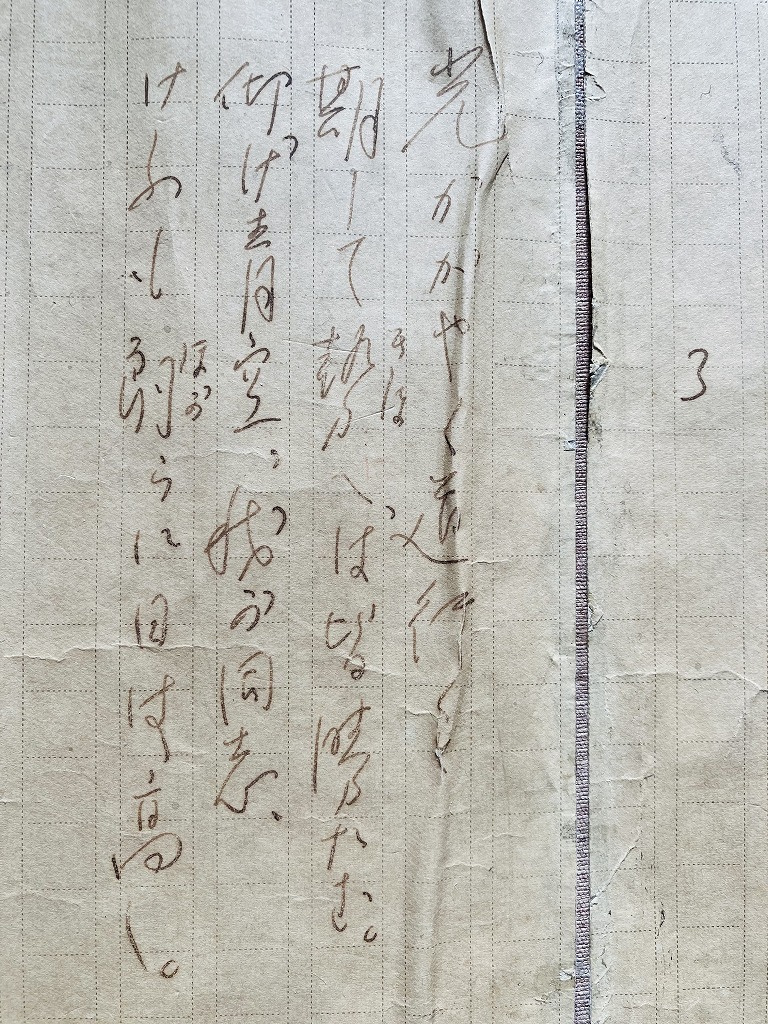 3
光かがやく道行く
期して勢へば皆勝たむ。
きほ
仰げ青空、我が同志、
けふも朗らに日は高し。
ほが